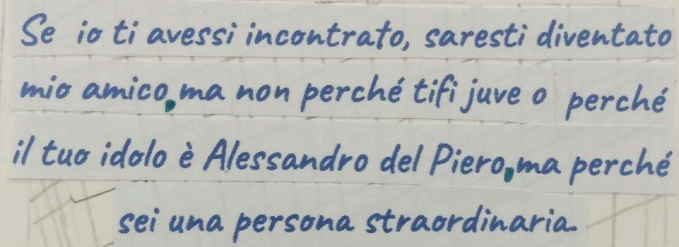 Se io ti avessi incontrato, saresti diventato
mio amico, ma non perché tifi juve o perché
il tuo idolo è Alessandro del Piero, ma perché
sei una persona straordinaria.